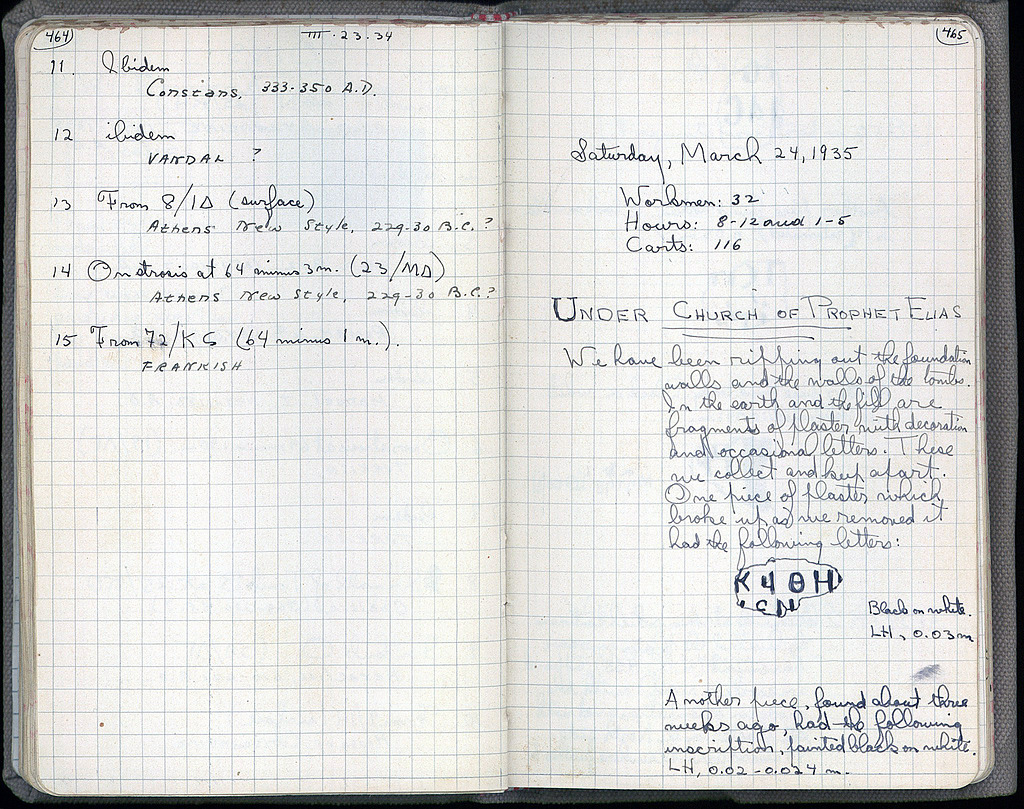 464
III·23·34
11. Ibidem
Constans, 333-350 A.D.
12 ibidem
VANDAL ?
13 From 8/ΙΔ (surface)
Athens New Style, 229-30 B.C.?
14 On strosis at 64 minus 3m. (23/ΜΔ)
Athens New Style, 229-30 B.C.?
15 From 72/ΚϚ (64 minus 1 m.).
FRANKISH
465
Saturday, March 24, 1935
Workmen: 32
Hours: 8-12 and 1-5
Carts: 116
UNDER CHURCH OF PROPHET ELIAS
We have been ripping out the foundation
walls and the walls of the tombs.
In the earth and the fill are
fragments of plaster with decoration
and occasional letters. These
we collect and keep apart.
One piece of plaster which
broke up as we removed it
had the following letters:
Black on white.
LH, 0.03m
Another piece, found about three
weeks ago, had the following
inscription, painted black on white.
LH, 0.02-0.024 m.